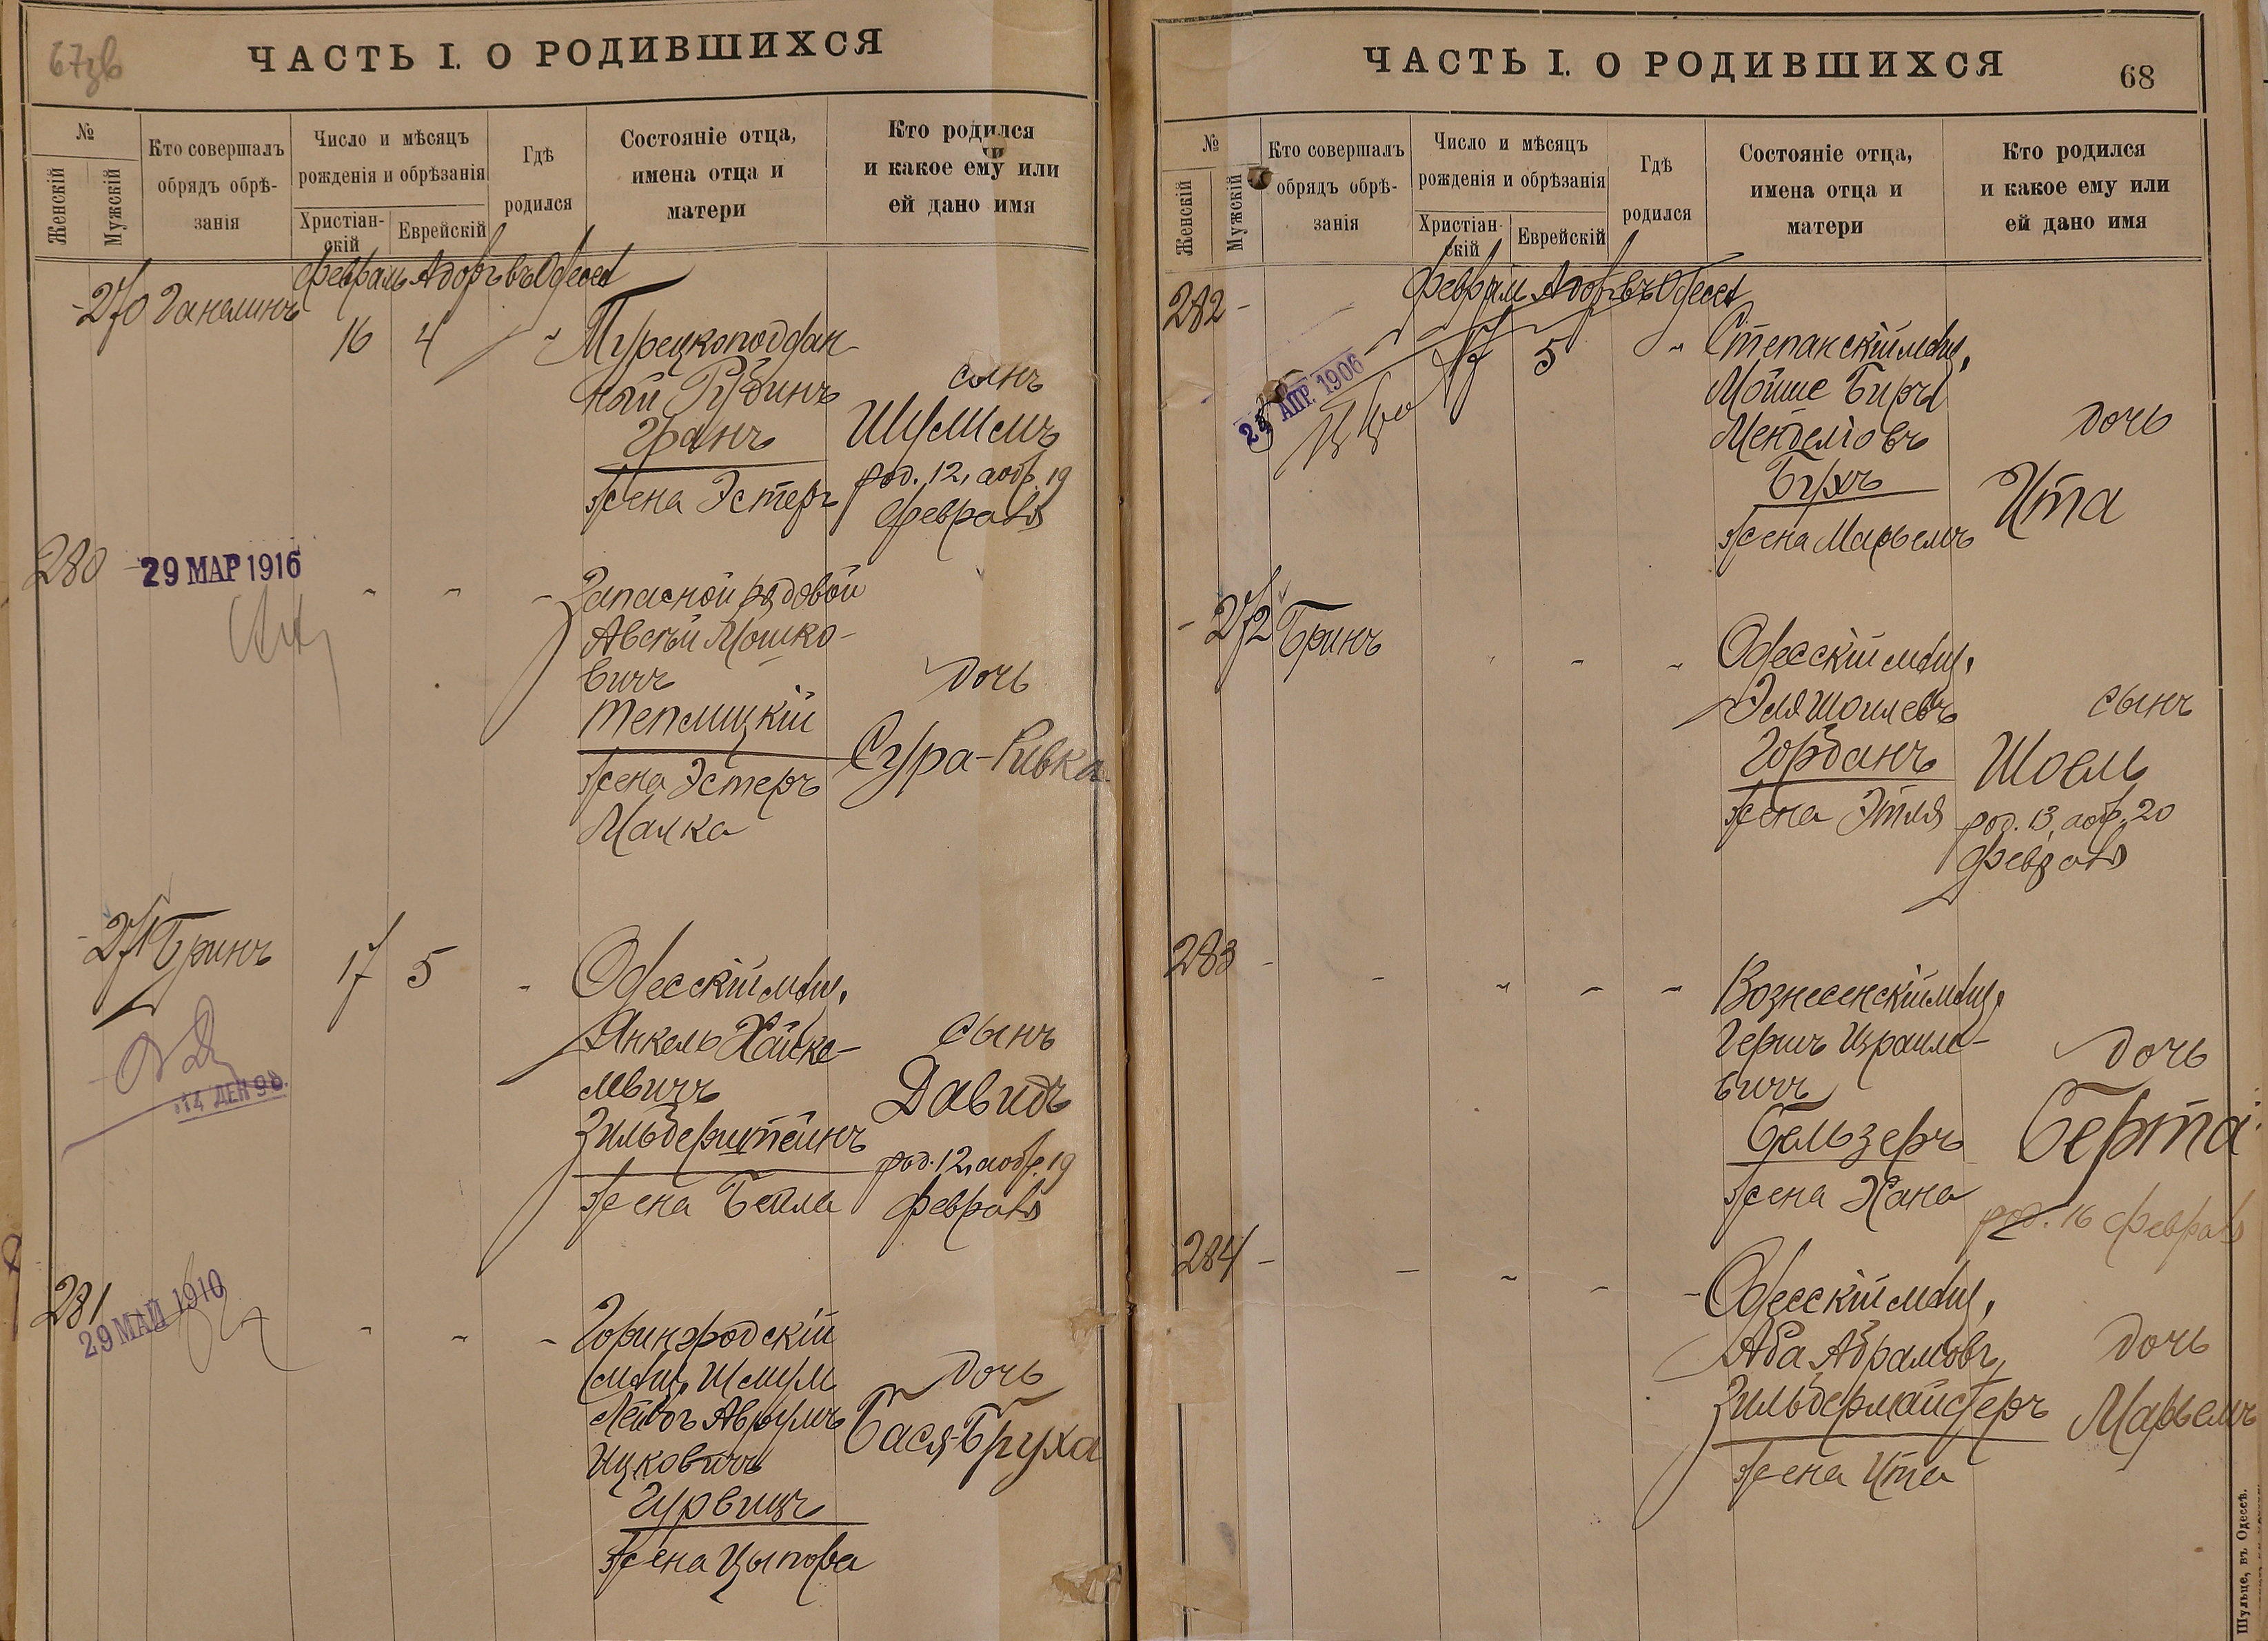 67зв
ЧАСТЬ I. О РОДИВШИХСЯ
№
Женскій
Мужскій
Кто совершалъ
обрядъ обрѣ-
занія
Число и мѣсяцъ
рожденія и обрѣзанія
Христіан-
скій
Еврейскій
Гдѣ
родился
Состояніе отца,
имена отца и
матери
Кто родился
и какое ему или
ей дано имя
Февраль Адоръ въ Одессѣ
270 Ганелинъ
16 4
Турецкоподдан-
ный Рубинъ
Гранъ
жена Эстеръ
сынъ
Шулимъ
род. 12, а обр. 19
февраля
280
29 МАР 1916
Запасной рядовой
Авсѣй Мошко-
вичъ
Теплицкій
жена Эстеръ
Малка
дочь
Сура-Ривка
271 Бринъ
17 5
14 ДЕК 98
Одесскій мѣщ.
Янкель Хаике-
левичъ
Зильберштейнъ
жена Бейла
сынъ
Давидъ
род. 12, а обр. 19
февраля
281
29 МАЙ 1910
Горингродскій
мѣщ. Шмуль
Лейбъ Аврумъ
Ицковичъ
Гурвицъ
жена Цыпора
дочь
Бася-Бруха
ЧАСТЬ I. О РОДИВШИХСЯ
68
№
Женскій
Мужскій
Кто совершалъ
обрядъ обрѣ-
занія
Число и мѣсяцъ
рожденія и обрѣзанія
Христіан-
скій
Еврейскій
Гдѣ
родился
Состояніе отца,
имена отца и
матери
Кто родился
и какое ему или
ей дано имя
Февраль Адоръ въ Одессѣ
282
17 5
АПР. 1906
Степанскій мѣщ.
Мойше Беръ
Менделіовъ
Бухъ
жена Марьемъ
дочь
Ита
272 Бринъ
Одесскій мѣщ.
Эля Шоилевъ
Горбанъ
жена Этля
сынъ
Шоель
род. 13, а обр. 20
февраля
283
Вознесенскій мѣщ.
Гершъ Израиле-
вичъ
Бельзеръ
жена Хана
дочь
Берта
род. 16 февраля
284
Одесскій мѣщ.
Аба Абрамовъ
Зильбермайстеръ
жена Ита
дочь
Марьемъ
Шульце, въ Одессѣ.